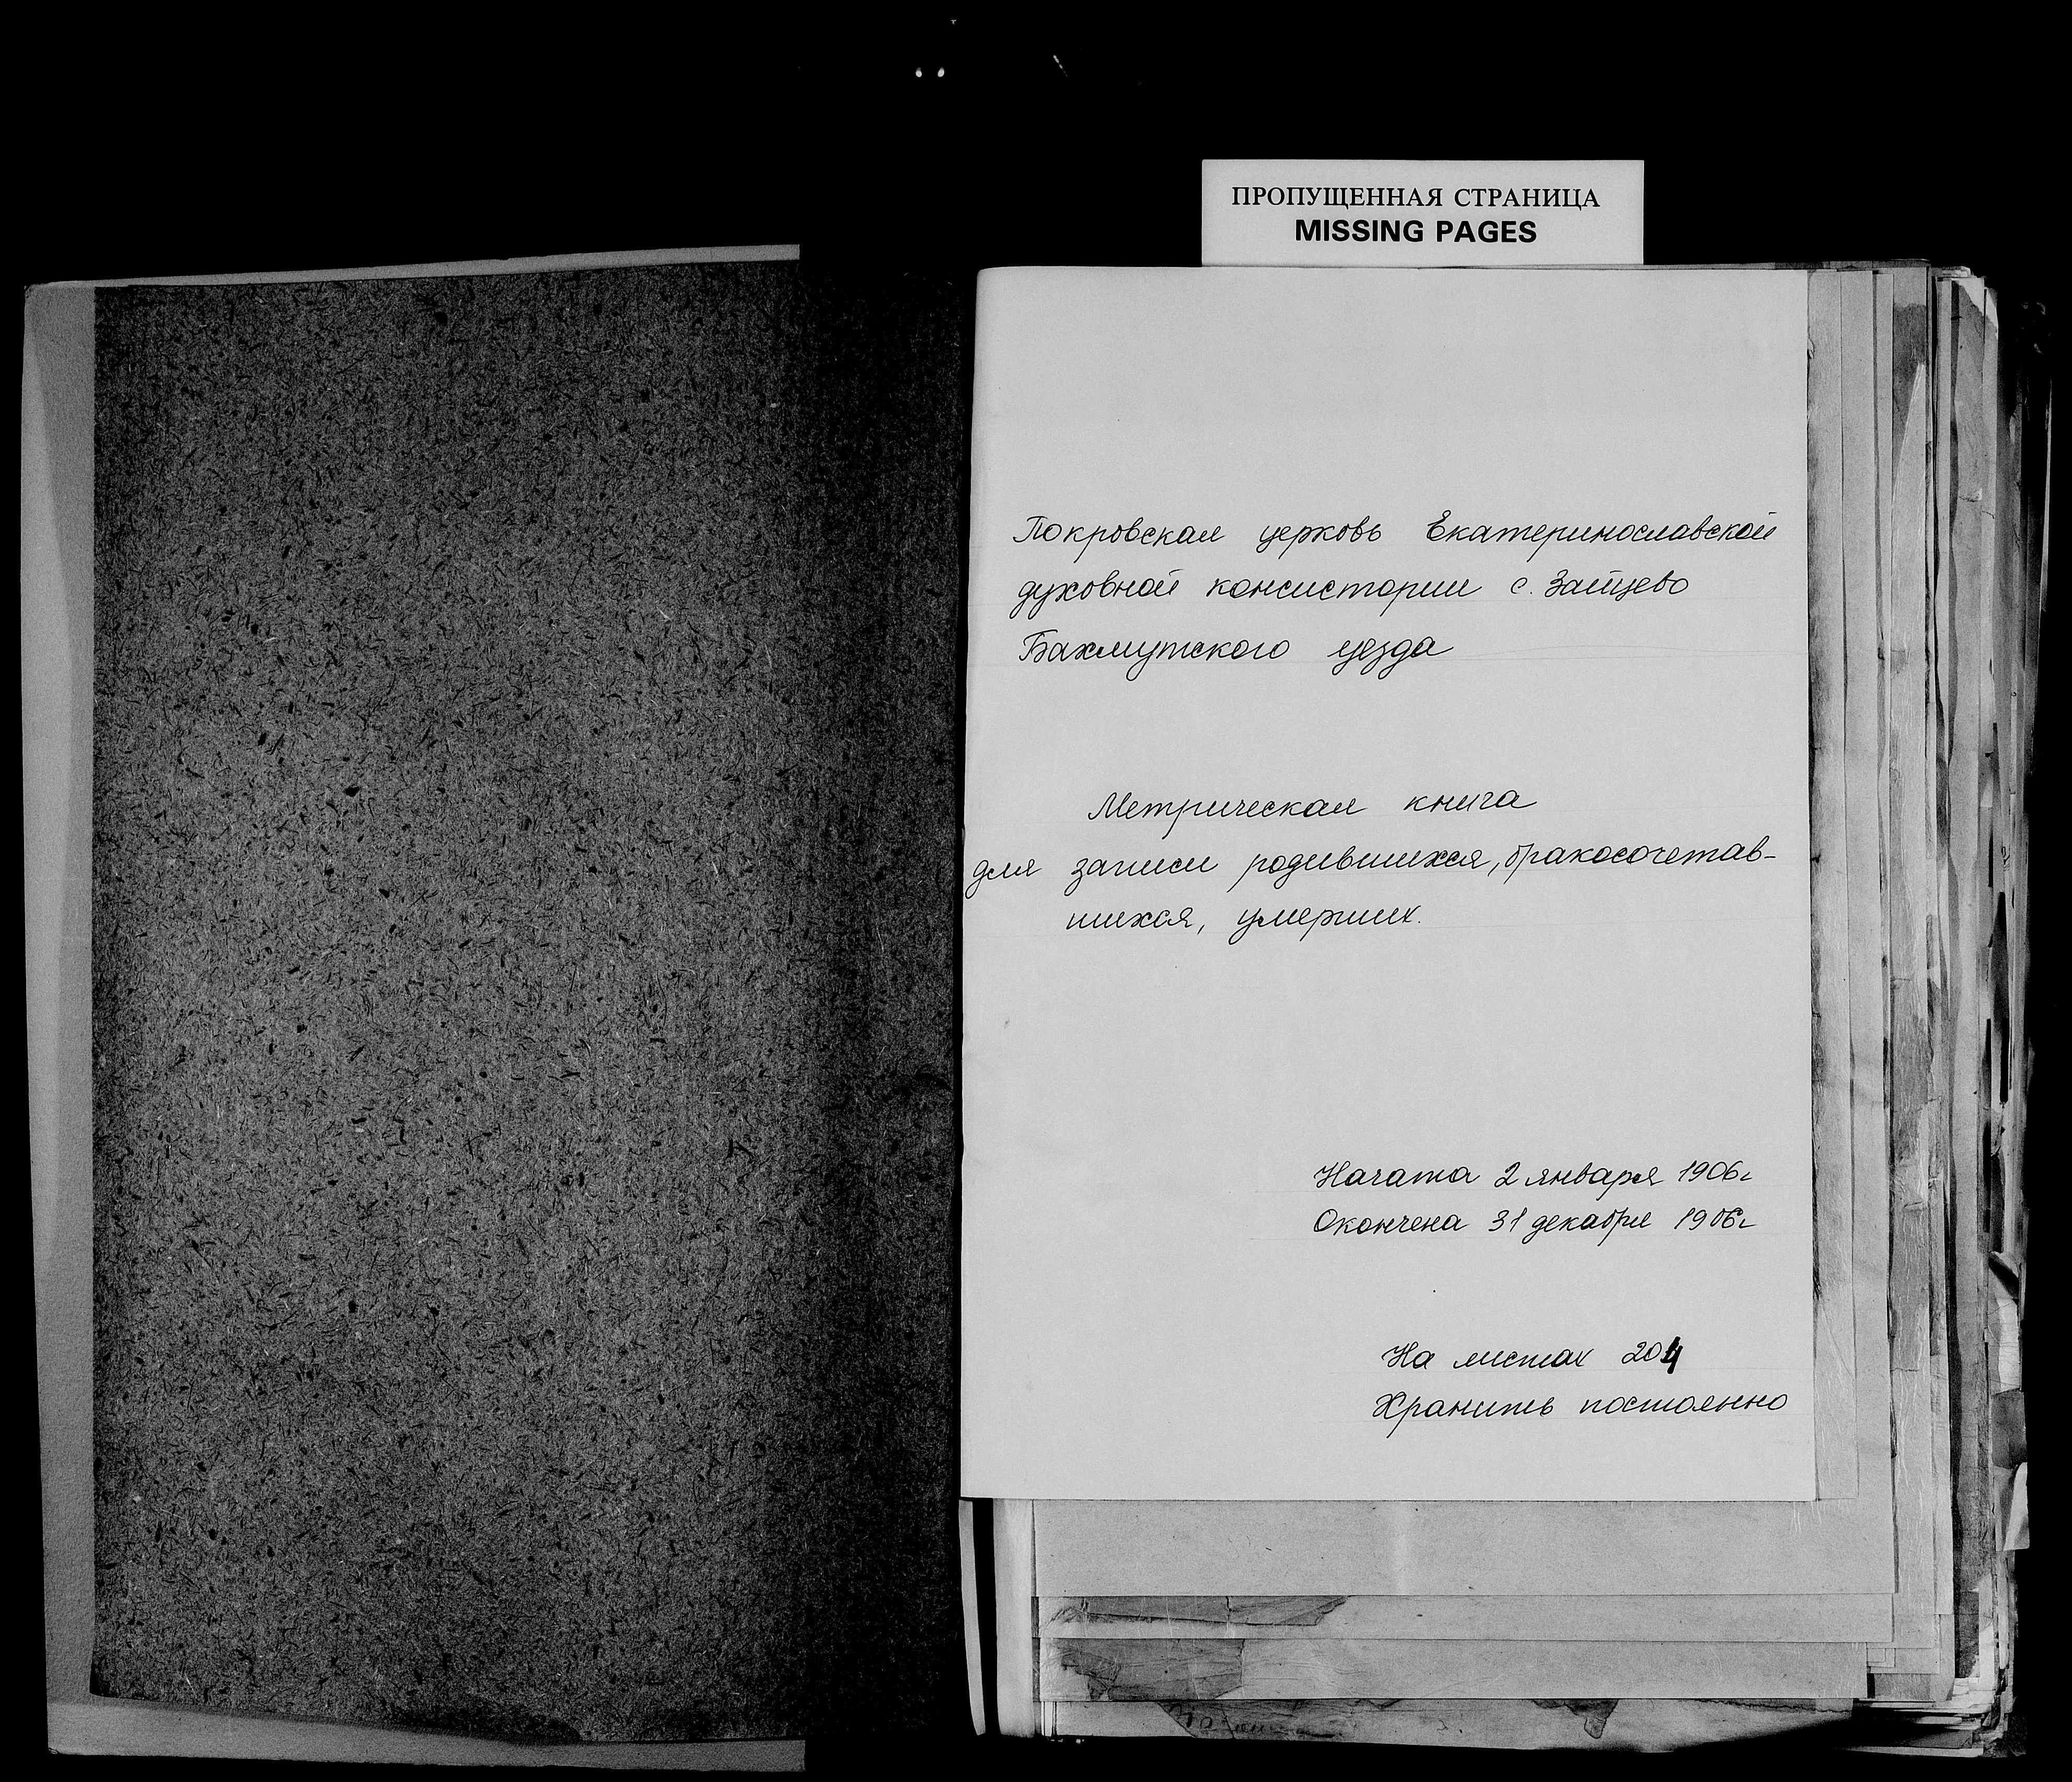 ПРОПУЩЕННАЯ СТРАНИЦА
MISSING PAGES
Покровская церковь Екатеринославской
духовной консистории с. Зайцево
Бахмутского уезда
Метрическая книга
для записи родившихся, бракосочетав-
шихся, умерших.
Начата 2 января 1906г
Окончена 31 декабря 1906г
На листах 204
Хранить постоянно